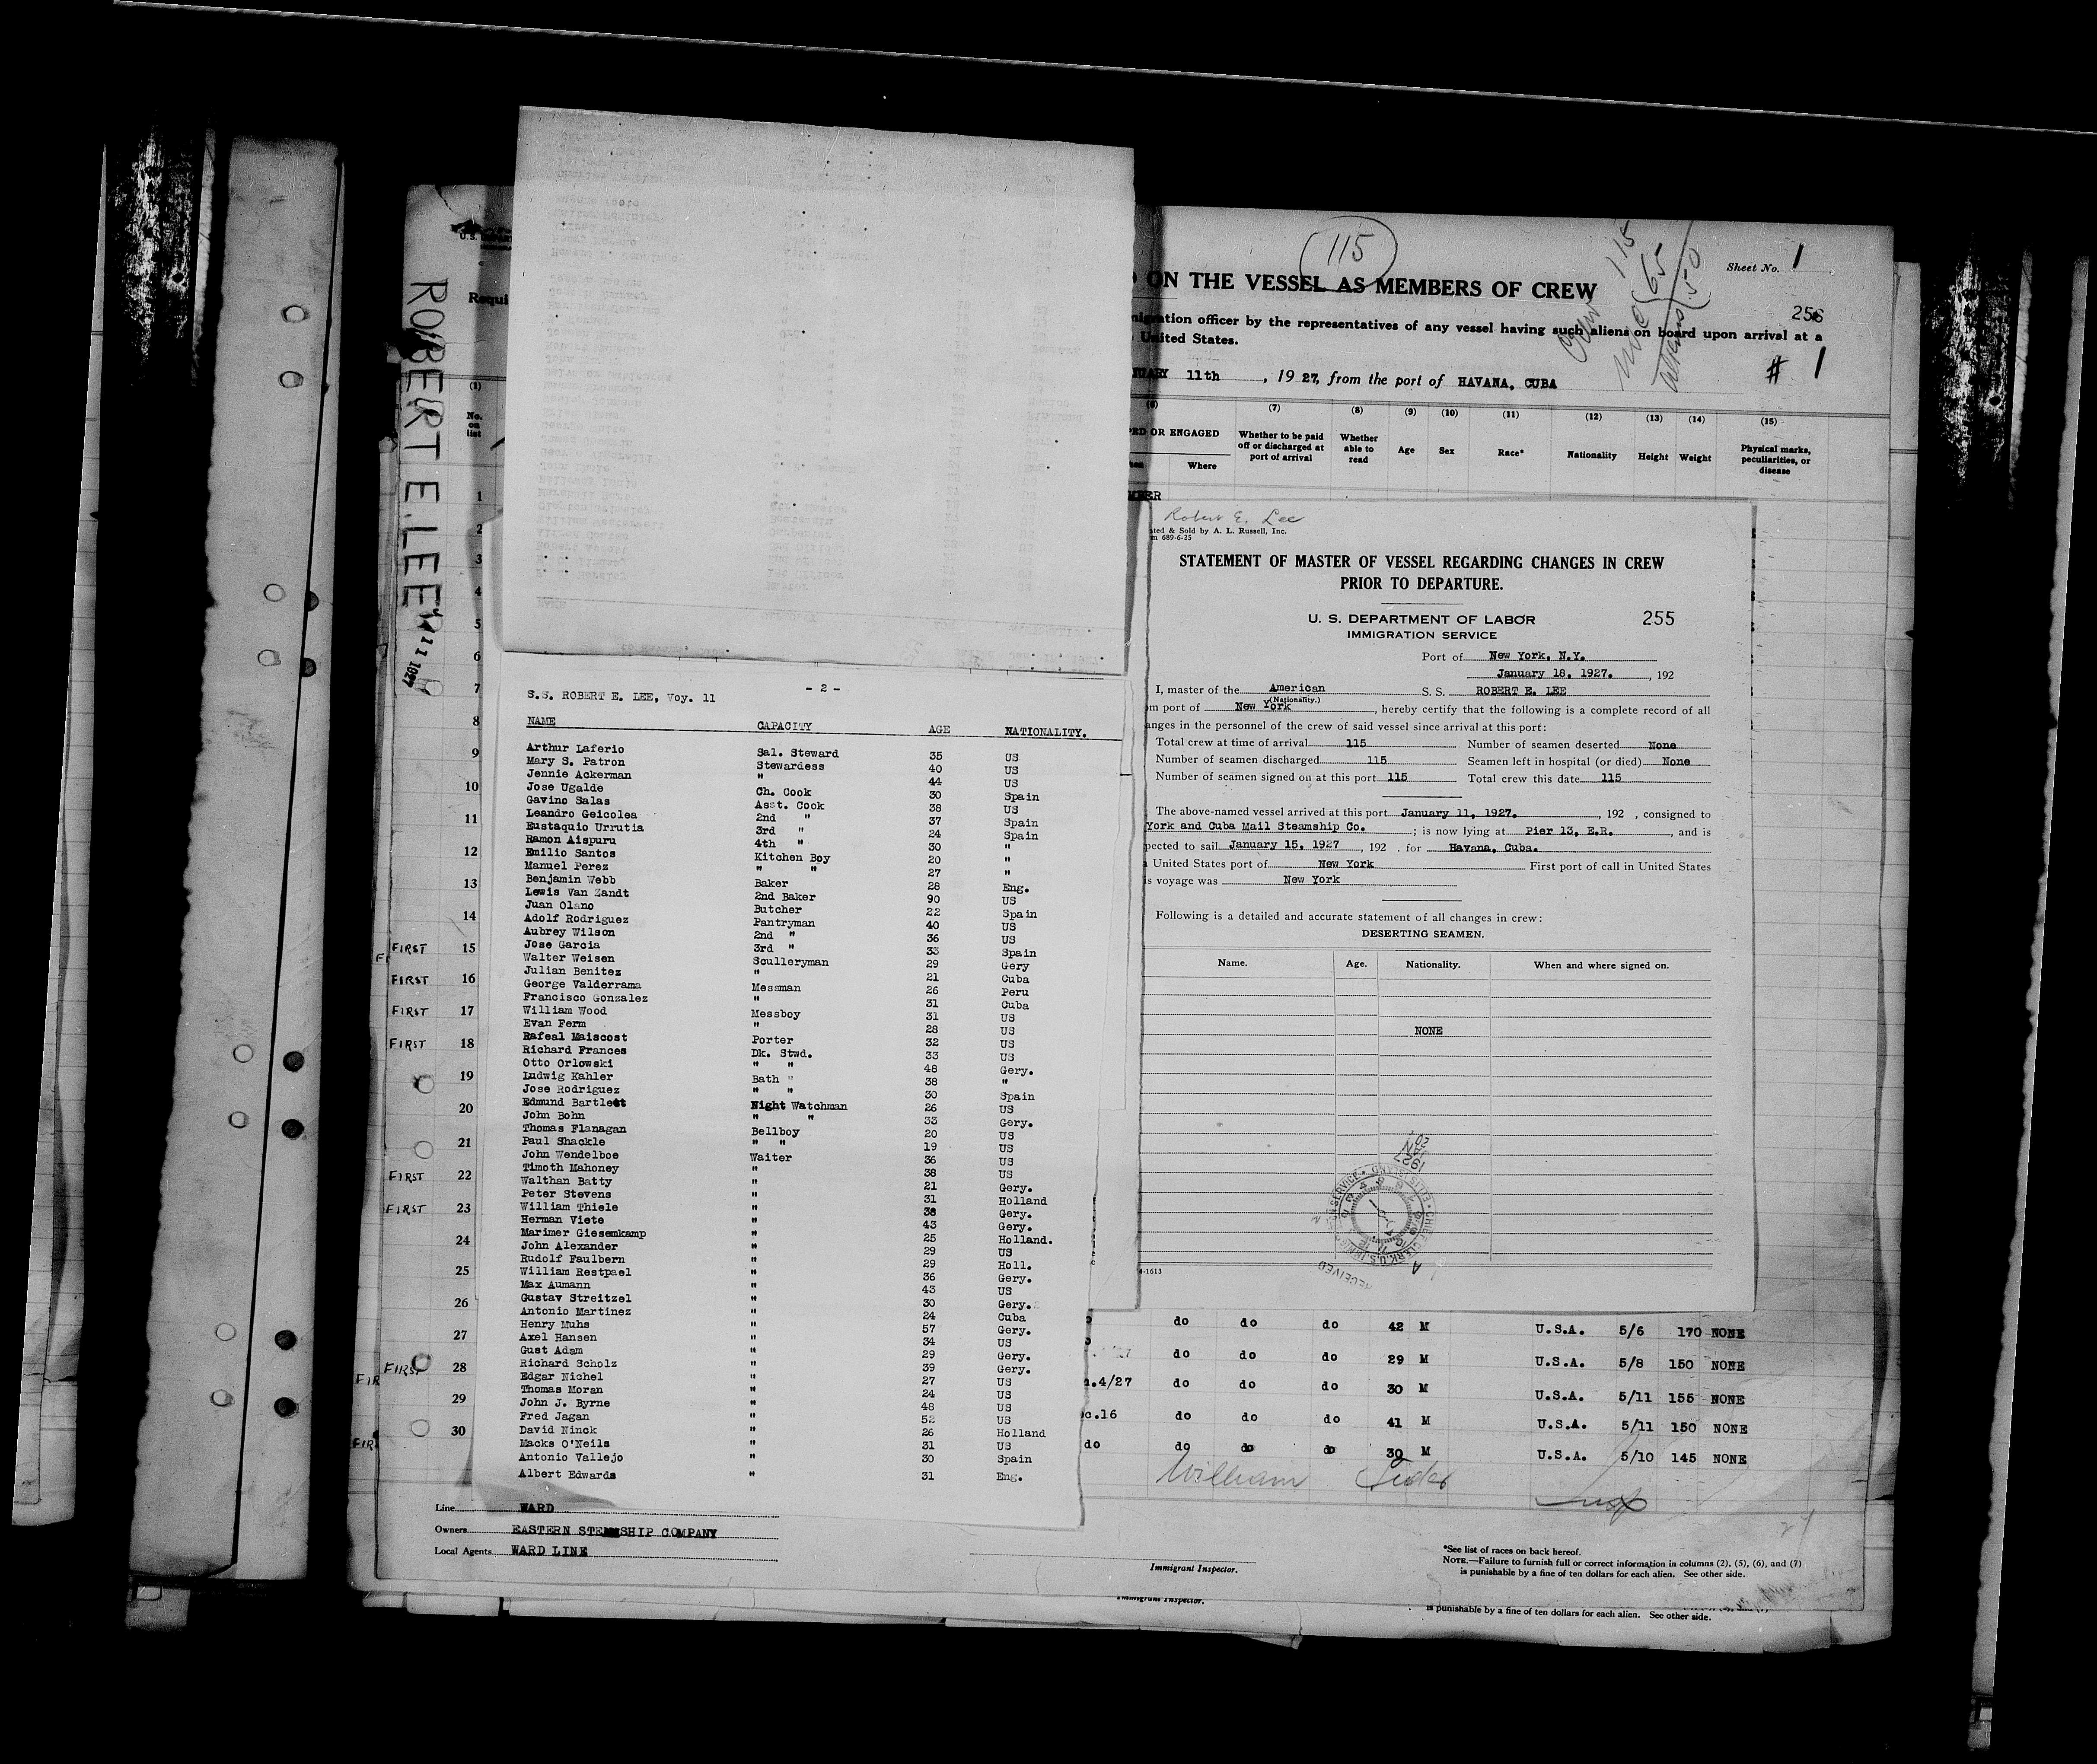 ROBERT E. LEE
115
Sheet No. 1
ON THE VESSEL AS MEMBERS OF CREW
256
officer by the representatives of any vessel having such aliens on board upon arrival at a
United States.
11th, 1927, from the port of HAVANA, CUBA
# 1
(1) (6) (7) (8) (9) (10) (11) (12) (13) (14) (15)
No. on list
OR ENGAGED
Where
Whether to be paid off or discharged at port of arrival
Whether able to read
Age
Sex
Race*
Nationality
Height
Weight
Physical marks, peculiarities, or disease
S.S. ROBERT E. LEE, Voy. 11 - 2 -
NAME CAPACITY AGE NATIONALITY.
Arthur Laferio Sal. Steward 35 US
Mary S. Patron Stewardess 40 US
Jennie Ackerman " 44 US
Jose Ugalde Ch. Cook 30 Spain
Gavino Salas Asst. Cook 38 US
Leandro Geicolea 2nd " 37 Spain
Eustaquio Urrutia 3rd " 24 Spain
Ramon Aispuru 4th " 30 "
Emilio Santos Kitchen Boy 20 "
Manuel Perez " " 27 "
Benjamin Webb Baker 28 Eng.
Lewis Van Zandt 2nd Baker 90 US
Juan Olano Butcher 22 Spain
Adolf Rodriguez Pantryman 40 US
Aubrey Wilson 2nd " 36 US
Jose Garcia 3rd " 33 Spain
Walter Weisen Sculleryman 29 Gery
Julian Benitez " 21 Cuba
George Valderrama Messman 26 Peru
Francisco Gonzalez " 31 Cuba
William Wood Messboy 31 US
Evan Ferm " 28 US
Rafeal Maiscost Porter 32 US
Richard Frances Dk. Stwd. 33 US
Otto Orlowski " " 48 Gery.
Ludwig Kahler Bath " 38 "
Jose Rodriguez " " 30 Spain
Edmund Bartlett Night Watchman 26 US
John Bohn " " 33 Gery.
Thomas Flanagan Bellboy 20 US
Paul Shackle " " 19 US
John Wendelboe Waiter 36 US
Timoth Mahoney " 38 US
Walthan Batty " 21 Gery.
Peter Stevens " 31 Holland
William Thiele " 38 Gery.
Herman Viete " 43 Gery.
Marimer Giesemkamp " 25 Holland.
John Alexander " 29 US
Rudolf Faulbern " 29 Holl.
William Restpael " 36 Gery.
Max Aumann " 43 US
Gustav Streitzel " 30 Gery.
Antonio Martinez " 24 Cuba
Henry Muhs " 57 Gery.
Axel Hansen " 34 US
Gust Adam " 29 Gery.
Richard Scholz " 39 Gery.
Edgar Nichel " 27 US
Thomas Moran " 24 US
John J. Byrne " 48 US
Fred Jagan " 52 US
David Ninck " 26 Holland
Macks O'Neils " 31 US
Antonio Vallejo " 30 Spain
Albert Edwards " 31 Eng.
1
2
3
4
5
6
7
8
9
10
11
12
13
14
FIRST 15
FIRST 16
FIRST 17
FIRST 18
19
20
21
FIRST 22
FIRST 23
24
25
26
27
FIRST 28
29
30
Robert E. Lee
& Sold by A. L. Russell, Inc.
689-6-25
STATEMENT OF MASTER OF VESSEL REGARDING CHANGES IN CREW
PRIOR TO DEPARTURE.
U. S. DEPARTMENT OF LABOR
IMMIGRATION SERVICE
255
Port of New York, N.Y.
January 18, 1927. , 192
I, master of the American S. S. ROBERT E. LEE
(Nationality.)
port of New York, hereby certify that the following is a complete record of all
in the personnel of the crew of said vessel since arrival at this port:
Total crew at time of arrival 115 Number of seamen deserted None
Number of seamen discharged 115 Seamen left in hospital (or died) None
Number of seamen signed on at this port 115 Total crew this date 115
The above-named vessel arrived at this port January 11, 1927. , 192 , consigned to
York and Cuba Mail Steamship Co. ; is now lying at Pier 13, E.R. , and is
to sail January 15, 1927 , 192 . for Havana, Cuba.
United States port of New York First port of call in United States
voyage was New York
Following is a detailed and accurate statement of all changes in crew:
DESERTING SEAMEN.
Name. Age. Nationality. When and where signed on.
NONE
do do do 42 M U.S.A. 5/6 170 NONE
do do do 29 M U.S.A. 5/8 150 NONE
4/27 do do do 30 M U.S.A. 5/11 155 NONE
16 do do do 41 M U.S.A. 5/11 150 NONE
do do do do 30 M U.S.A. 5/10 145 NONE
William
Line WARD
Owners EASTERN STEAMSHIP COMPANY
Local Agents WARD LINE
Immigrant Inspector.
*See list of races on back hereof.
NOTE.—Failure to furnish full or correct information in columns (2), (5), (6), and (7)
is punishable by a fine of ten dollars for each alien. See other side.
Immigrant Inspector.
is punishable by a fine of ten dollars for each alien. See other side.